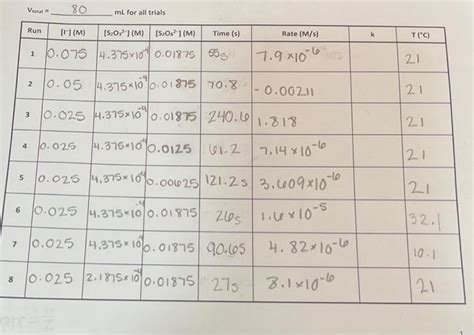 V total = 80 mL for all trials
Run [I⁻] (M) [S₂O₃²⁻] (M) [S₂O₈²⁻] (M) Time (s) Rate (M/s) k T (°C)
1 0.075 4.375×10⁻⁴ 0.01875 55s 7.9×10⁻⁶ 21
2 0.05 4.375×10⁻⁴ 0.01875 70.8 -0.00211 21
3 0.025 4.375×10⁻⁴ 0.01875 240.6 1.818 21
4 0.025 4.375×10⁻⁴ 0.0125 61.2 7.14×10⁻⁶ 21
5 0.025 4.375×10⁻⁴ 0.00625 121.2s 3.609×10⁻⁶ 21
6 0.025 4.375×10⁻⁴ 0.01875 26s 1.6×10⁻⁵ 32.1
7 0.025 4.375×10⁻⁴ 0.01875 90.6s 4.82×10⁻⁶ 10.1
8 0.025 2.1875×10⁻⁴ 0.01875 27s 8.1×10⁻⁶ 21